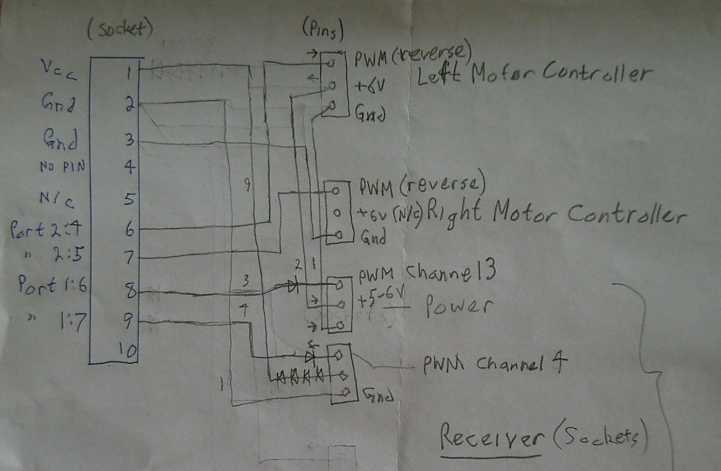 (Socket)
(Pins)
Vcc 1
Gnd 2
Gnd 3
NO PIN 4
N/C 5
Port 2:4 6
" 2:5 7
Port 1:6 8
" 1:7 9
10
PWM (reverse)
+6V
Gnd
Left Motor Controller
PWM (reverse)
+6v (N/C)
Gnd
Right Motor Controller
PWM Channel 3
+5-6V
Power
PWM Channel 4
Gnd
9
2
1
3
4
1
Receiver (Sockets)